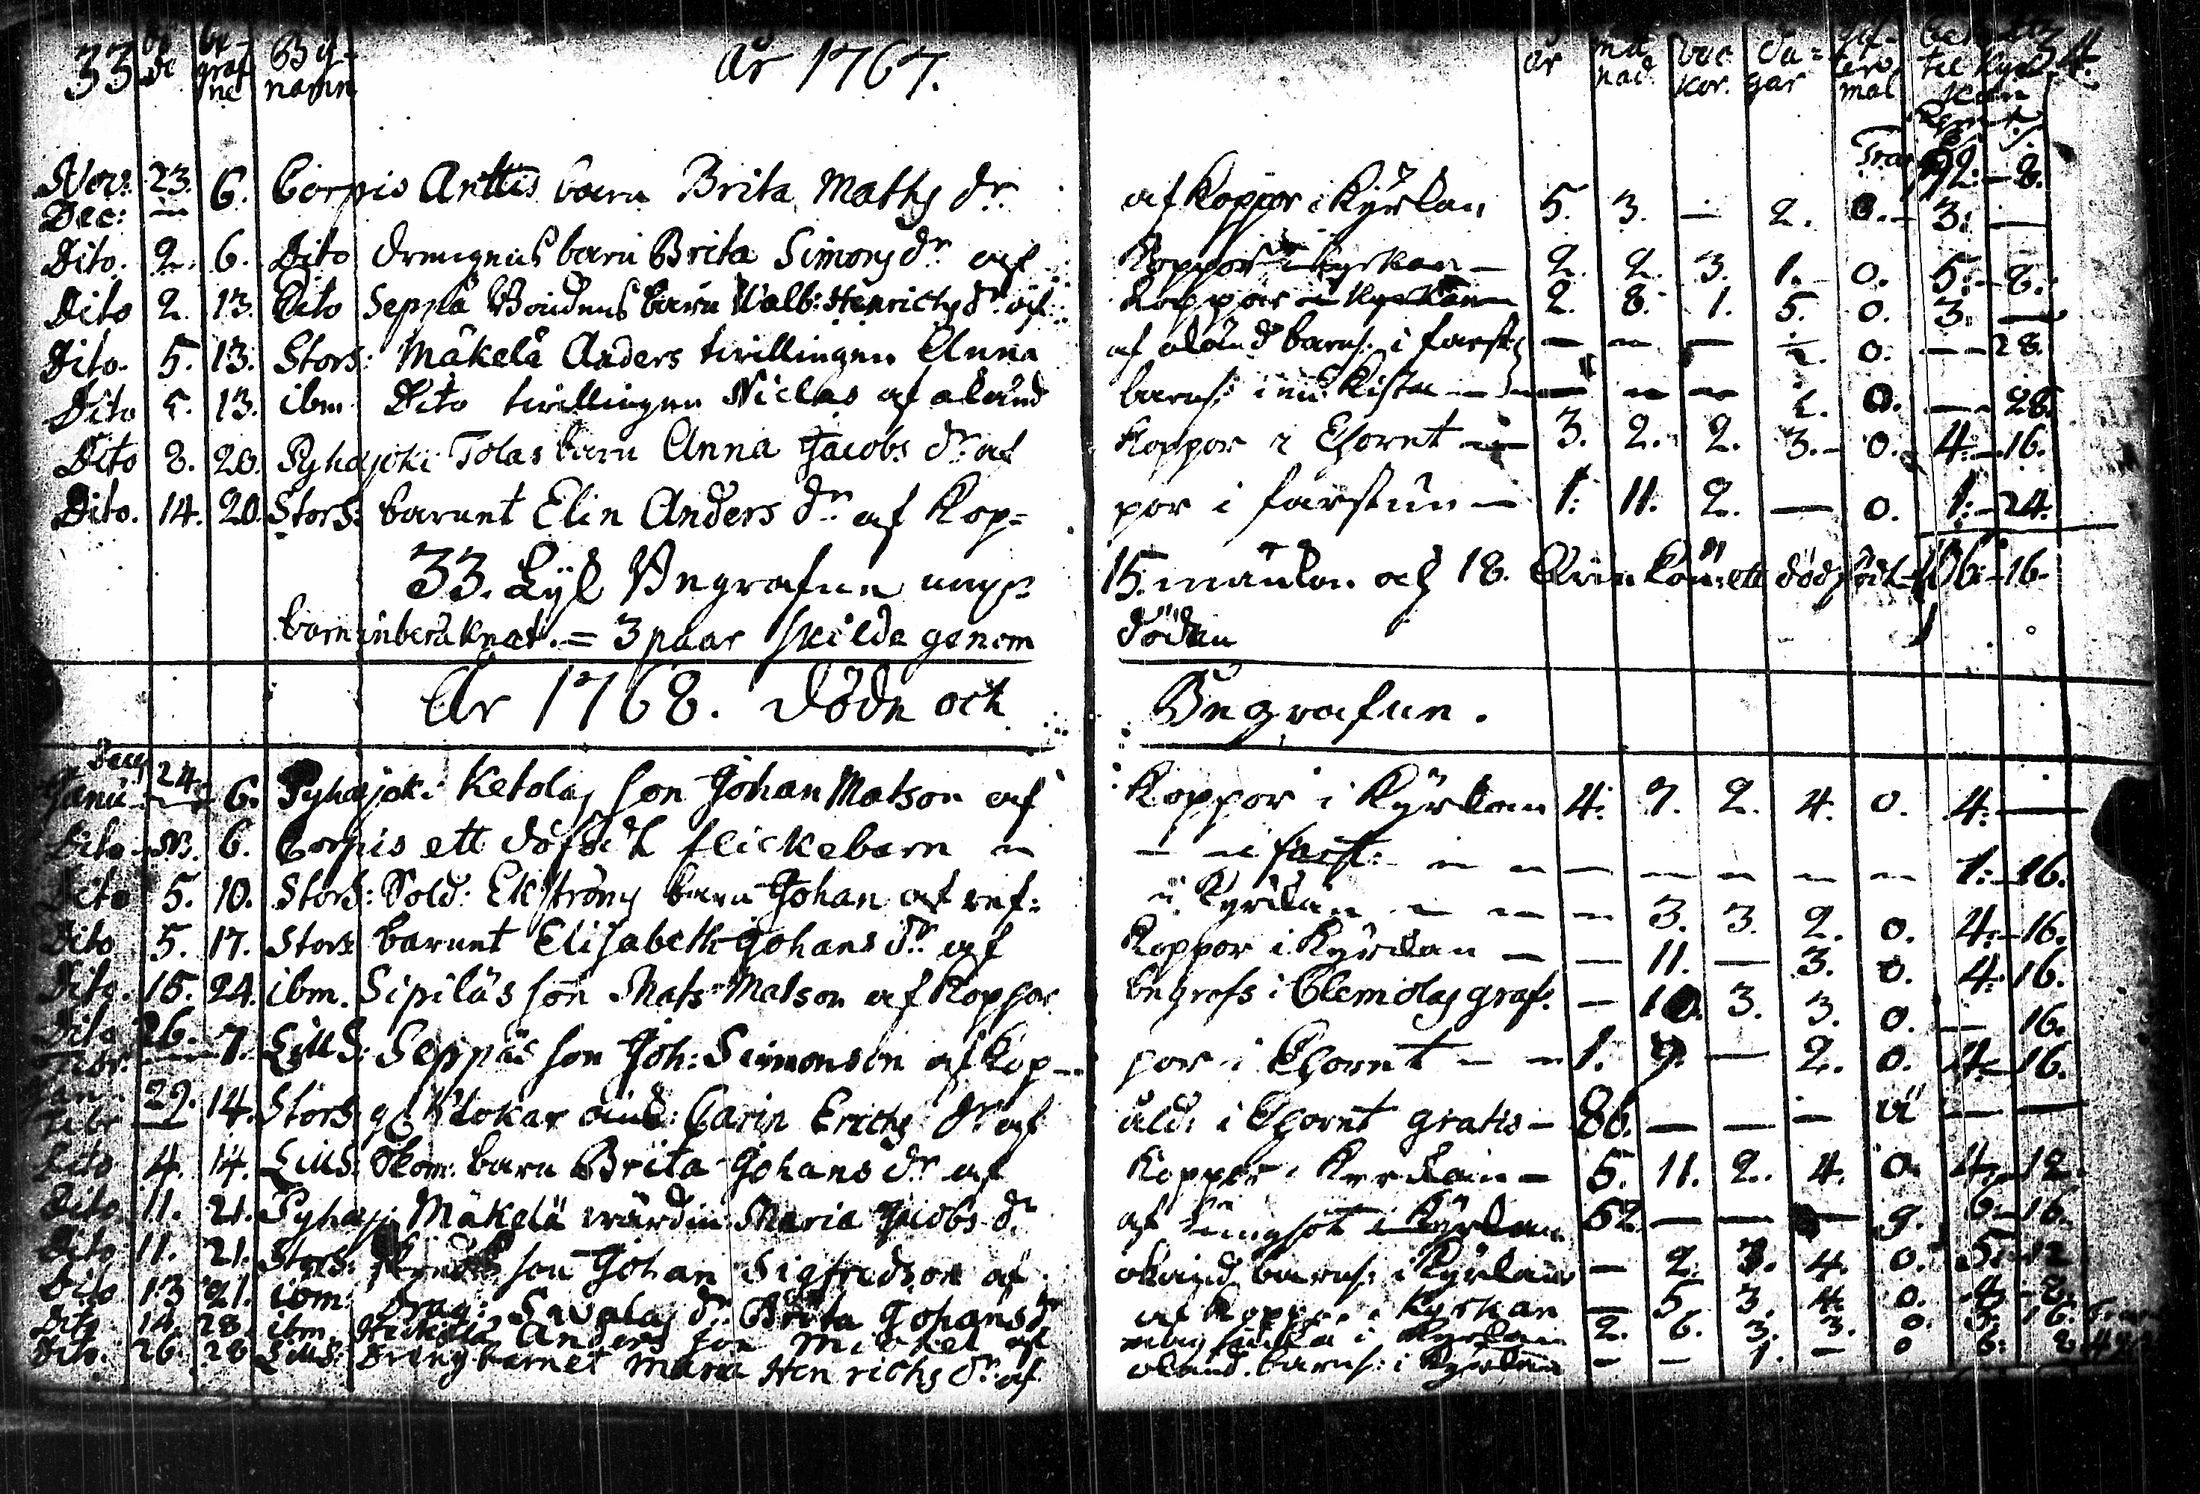 33 be- By- År 1767. år må vec da- 34.
de graf namn nad. kor. gar mål
ne
Nov: 23. 6. Corpis Anttis barn Brita Mathsdr af koppor i Kyrkan 5. 3. — 2. 0. 3. —
Dec: —
Dito. 2. 6. Dito drängens barn Brita Simonsdr af Koppor i kyrkan — 2. 2. 3. 1. 0. 5. — 8.
Dito 2. 13. Dito Seppä Bondens barn Walb: Henrichsdr af Koppor i kyrkan 2. 8. 1. 5. 0. 3. —
Dito. 5. 13. Stors: Mäkelä Anders tvillingen Anna af okänd barns: i farst: — — — ½. 0. — 28.
Dito 5. 13. ibm Dito tvillingen Niclas af okänd barns: i en kista — — — — ½. 0. — 28.
Dito 8. 20. Pyhajoki Tolas barn Anna Jacobsdr af Koppor i Choret — 3. 2. 2. 3. 0. 4. — 16.
Dito. 14. 20. Stors: barnet Elin Andersdr af Kop= por i farstun — 1. 11. 2. — 0. 1. — 24.
33. Lijk Begrafne uppr 15. mankön och 18. Qvinkön: ett dödfödt 106. — 16.
barn inberäknat. = 3 paar skilde genom döden
År 1768. Döde och Begrafne.
Dec 24.
Janu — 6. Pyhajoki Ketolas son Johan Matson af Koppor i Kyrkan 4. 7. 2. 4. 0. 4. —
Dito 6. Corpis ett döfödt flickebarn — — i farst: — — — — — — — 1. — 16.
Dito 5. 10. Stors: Sold: Ekströms barn Johan af ref= i Kyrkan — — — 3. 3. 2. 0. 4. — 16.
Dito 5. 17. Stors barnet Elisabeth Johansdr af Koppor i Kyrkan — — 11. — 3. 0. 4. 16.
Dito. 15. 24. ibm. Sipiläs son Mats Matson af Koppor begrafs i Clemolas graf. — 10. 3. 3. 0. — 16.
Dito 26. 7. Liud: Seppäs son Joh: Simonson af Kop— por i Choret — — 1. 9. — 2. 0. 4. — 16.
Febr. —
Jan. 29. 14. Stors gl Klokar änk: Carin Erichsdr af åld: i Choret gratis — 86. — — — — —
Febr —
Dito 4. 14. Liud: Skom: barn Brita Johansdr af Koppor i Kyrkan — 5. 11. 2. 4. 0. 4. — 12.
Dito 11. 21. Pyhaj: Mäkelä wärdin: Maria Jacobsdr af lungsot i Kyrkan 52. — — — g. 6. — 16.
Dito 11. 21. Stors: son Johan Sigfredson af okänd barns: i Kyrkan — 2. 3. 4. 0. 5. — 12
Dito 13 21. ibm: Drag: Savelasdr Brita Johansdr af Koppor i Kyrkan — 5. 3. 4. 0. 4. — 8.
Dito 14. 28. ibm. Heikilä Anders son Michel af i Kyrkan 2. 6. 3. 3. 0. 3. 16.
Dito. 26. 28 Liud: Dreng barnet Maria Henrichsdr af okänd. barns: i Kyrkan — — 1. — 0 6. 8.